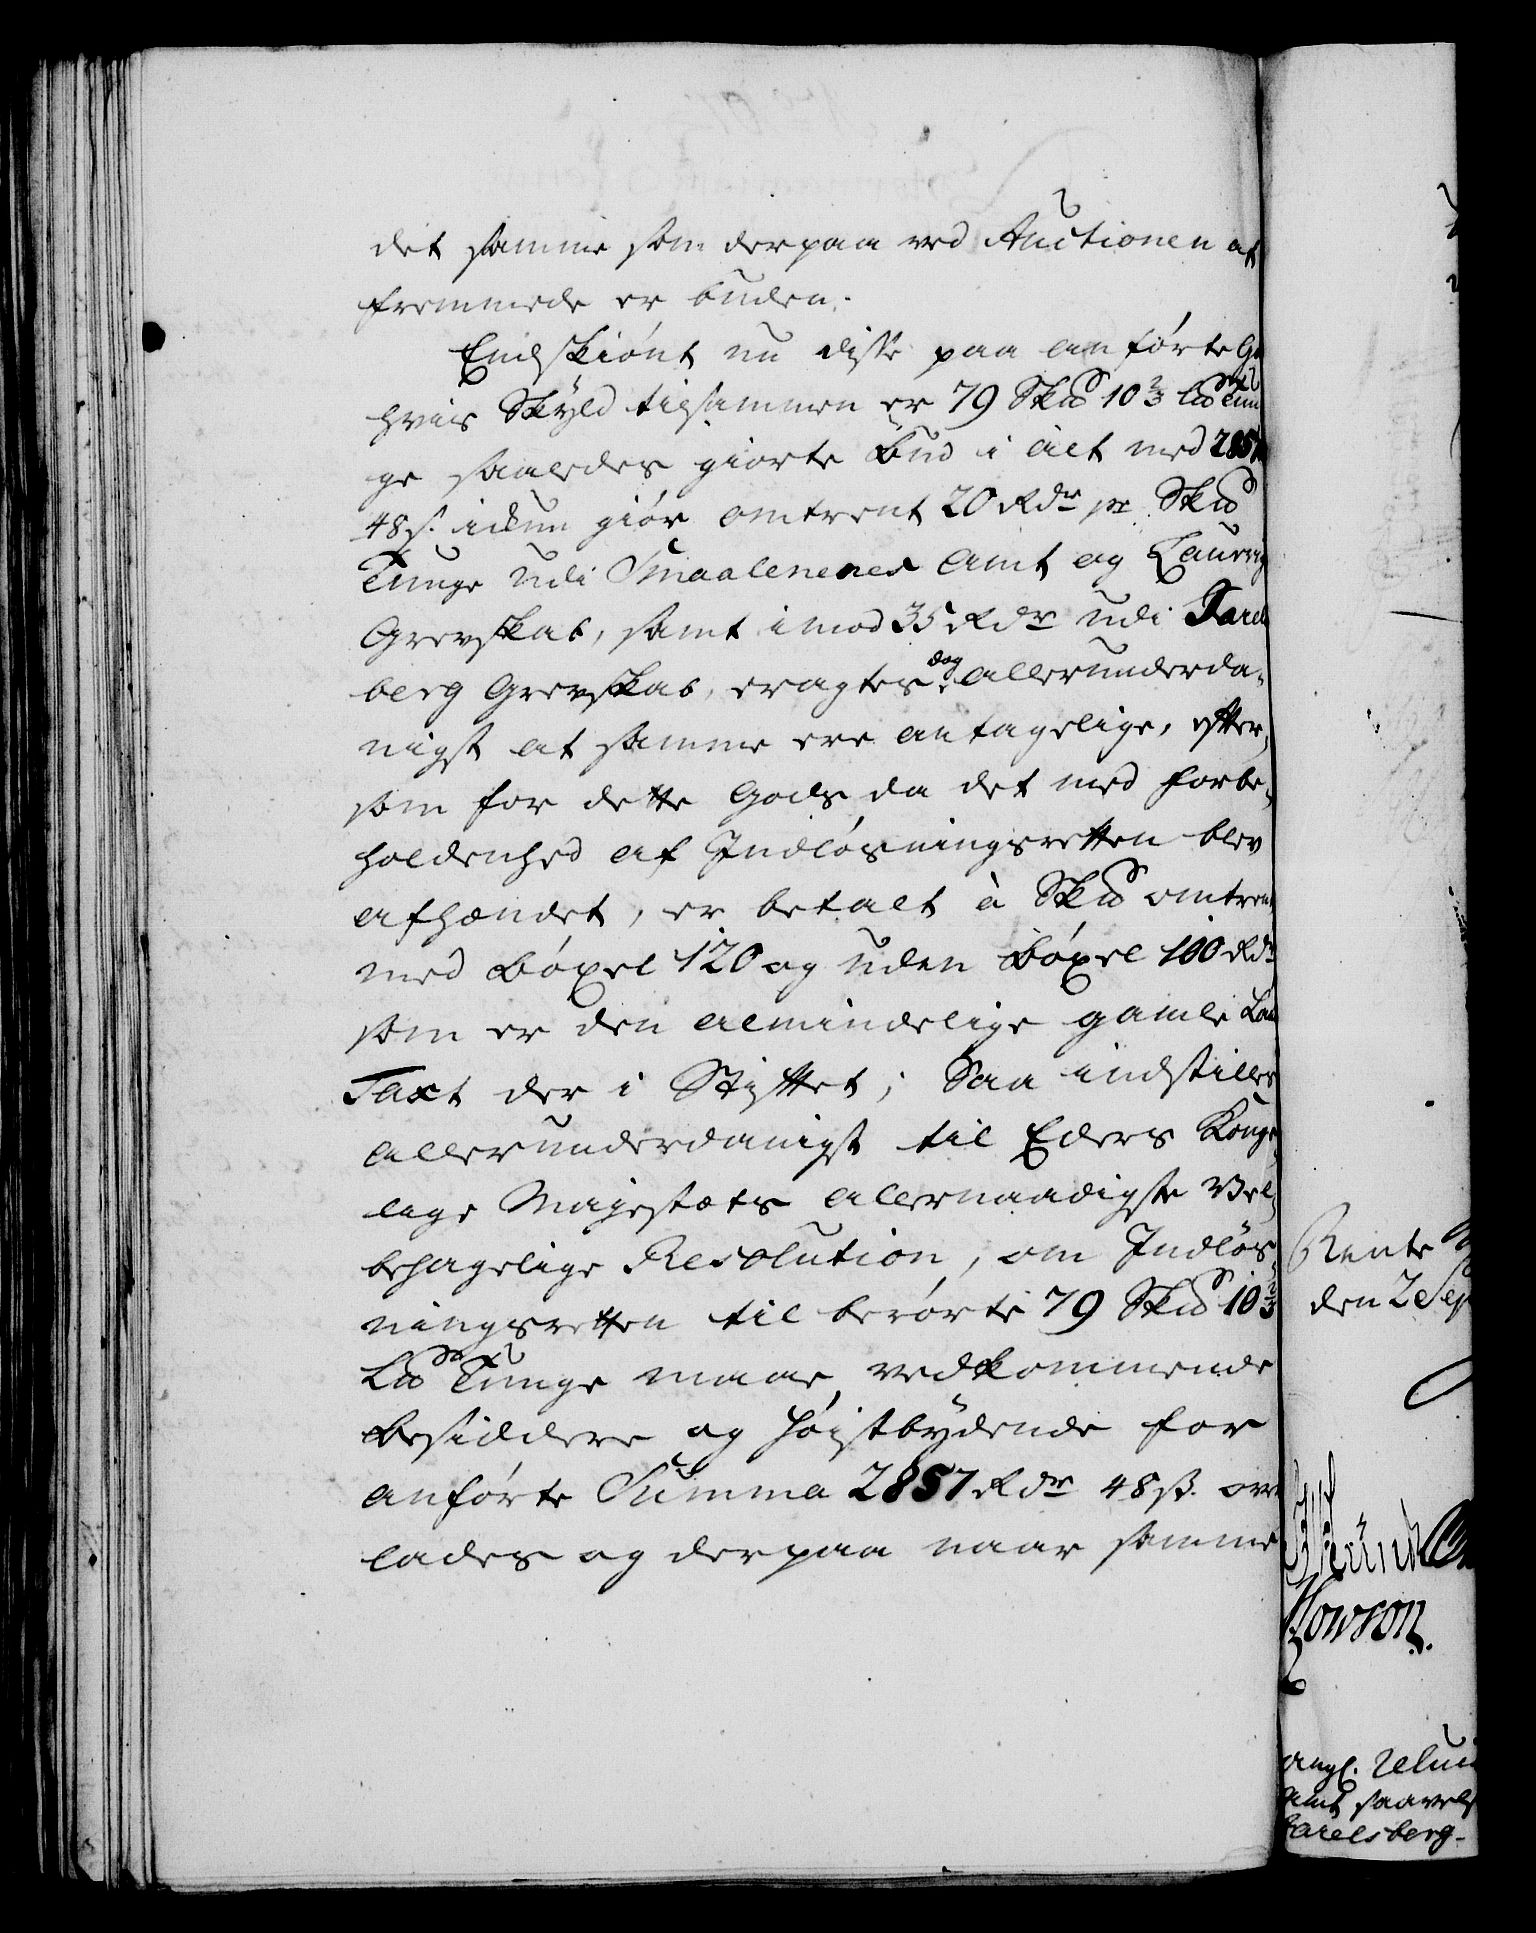 det samme som derpaa ved Auctionen af
fremmede er buden.
Endskiønt nu disse paa anførte
hvis Skyld tilsammen er 79 Skd 10 2/3 Ld Tun
ge saaledes giorte Bud i alt med 2857
48 s. ickun giør omtrent 20 Rdr pr Skd
Tunge udi Smaalenenes Amt og Laurvig
Grevskab, samt imod 35 Rdr udi Jarls
berg Grevskab, eragtes dog allerunderda-
nigst at samme ere antagelige, efter-
som for dette Gods, da det med Forbe-
holdenhed af Indløsningsretten blev
afhændet, er betalt à Skd omtrent
med Bøxel 120 og uden Bøxel 100 Rdr
som er den almindelige gamle Land
Taxt der i Stiftet; Saa indstilles
allerunderdanigst til Eders Konge-
lige Majestæts allernaadigste Vel-
behagelige Resolution, om Indløs-
ningsretten til berørte 79 Skd 10 2/3
Ld Tunge maae vedkommende
Besiddere og Høistbydende for
anførte Summa 2857 Rdr 48 ß. over
lades og derpaa naar samme
Rente
den 2 Sep
Howson.
amt saavel
Jarlsberg.